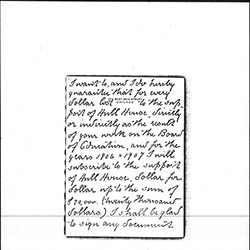 I want to, and I do hereby
guarantee that for every
Dollar lost to the sup-
port of Hull House, directly
or indirectly as the result
of your work on the Board
of Education, and for the
years 1906 & 1907 I will
subscribe to the support
of Hull House, Dollar for
Dollar up to the sum of
$20.000. (twenty thousand
Dollars) I shall be glad
to sign any document